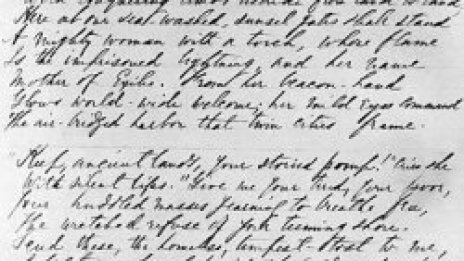 With conquering limbs astride from land to land
Here at our sea-washed, sunset gates shall stand
A mighty woman with a torch, whose flame
Is the imprisoned lightning and her name
Mother of Exiles. From her beacon-hand
Glows world-wide welcome; her mild eyes command
The air-bridged harbor that twin cities frame.
"Keep, ancient lands, your storied pomp!" Cries she
With silent lips. "Give me your tired, your poor,
Your huddled masses yearning to breathe free,
The wretched refuse of your teeming shore.
Send these, the homeless, tempest-tost to me,